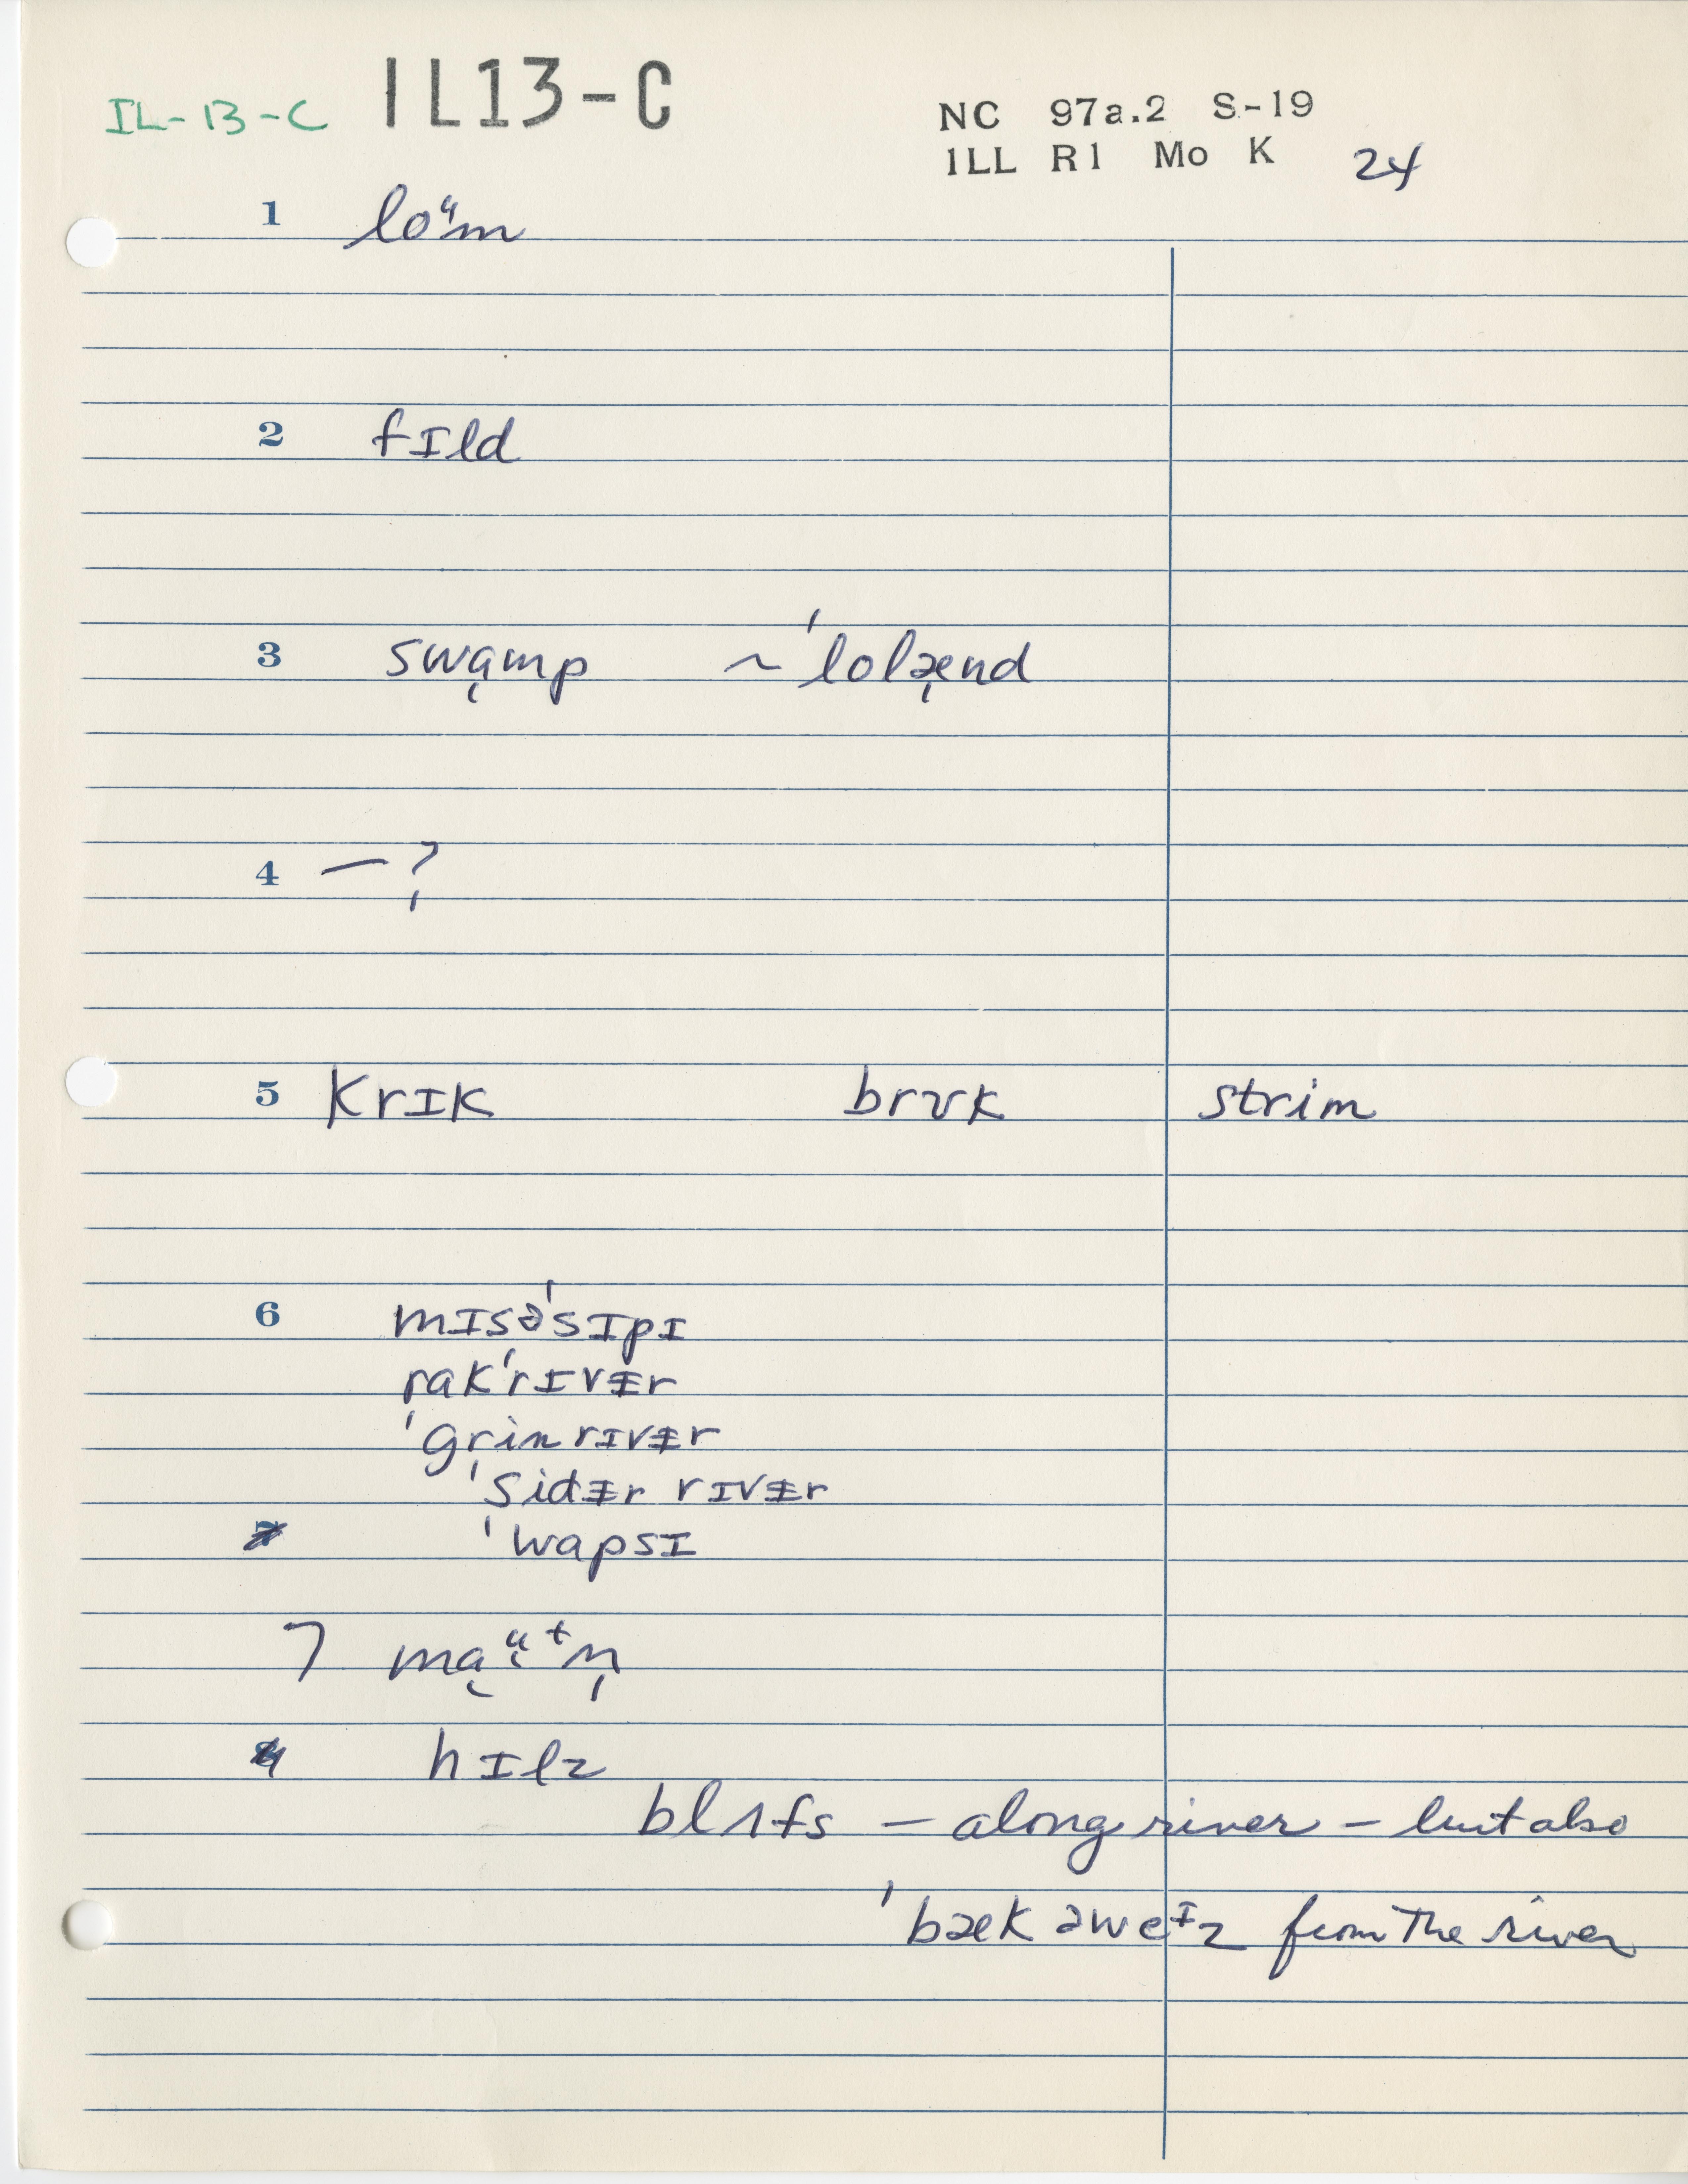 IL-13-C IL13-C
NC 97a.2 S-19
1LL R1 Mo K 24
1 loᵘm
2 fɪld
3 swɑ̨mp ~ ˈlolæ̨nd
4 — ?
5 krɪk brʊk strim
6 mɪsəˈsɪpɪ
rɑkˈrɪvɪ̵r
ˈgrin rɪvɪ̵r
ˈsidɪ̵r rɪvɪ̵r
ˈwɑpsɪ
7 mɑ̨ᵘᵗn̩
hɪlz
blʌfs — along river — but also
ˈbæk əweᶦz from the river